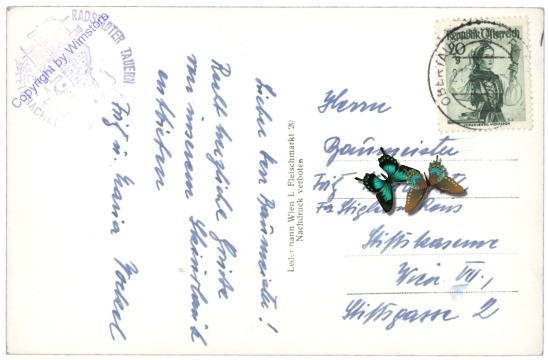 RADSTÄDTER TAUERN
Copyright by Wimstore
Lieber Herr Baumeister!
Recht herzliche Grüße
aus unserem Skiurlaub
entbieten
Fritz u. Maria
Ledermann Wien I, Fleischmarkt 20
Nachdruck verboten
Republik Österreich
20
OBERTAU
Herrn
Baumeister
Stiftskaserne
Wien VII.,
Stiftsgasse 2